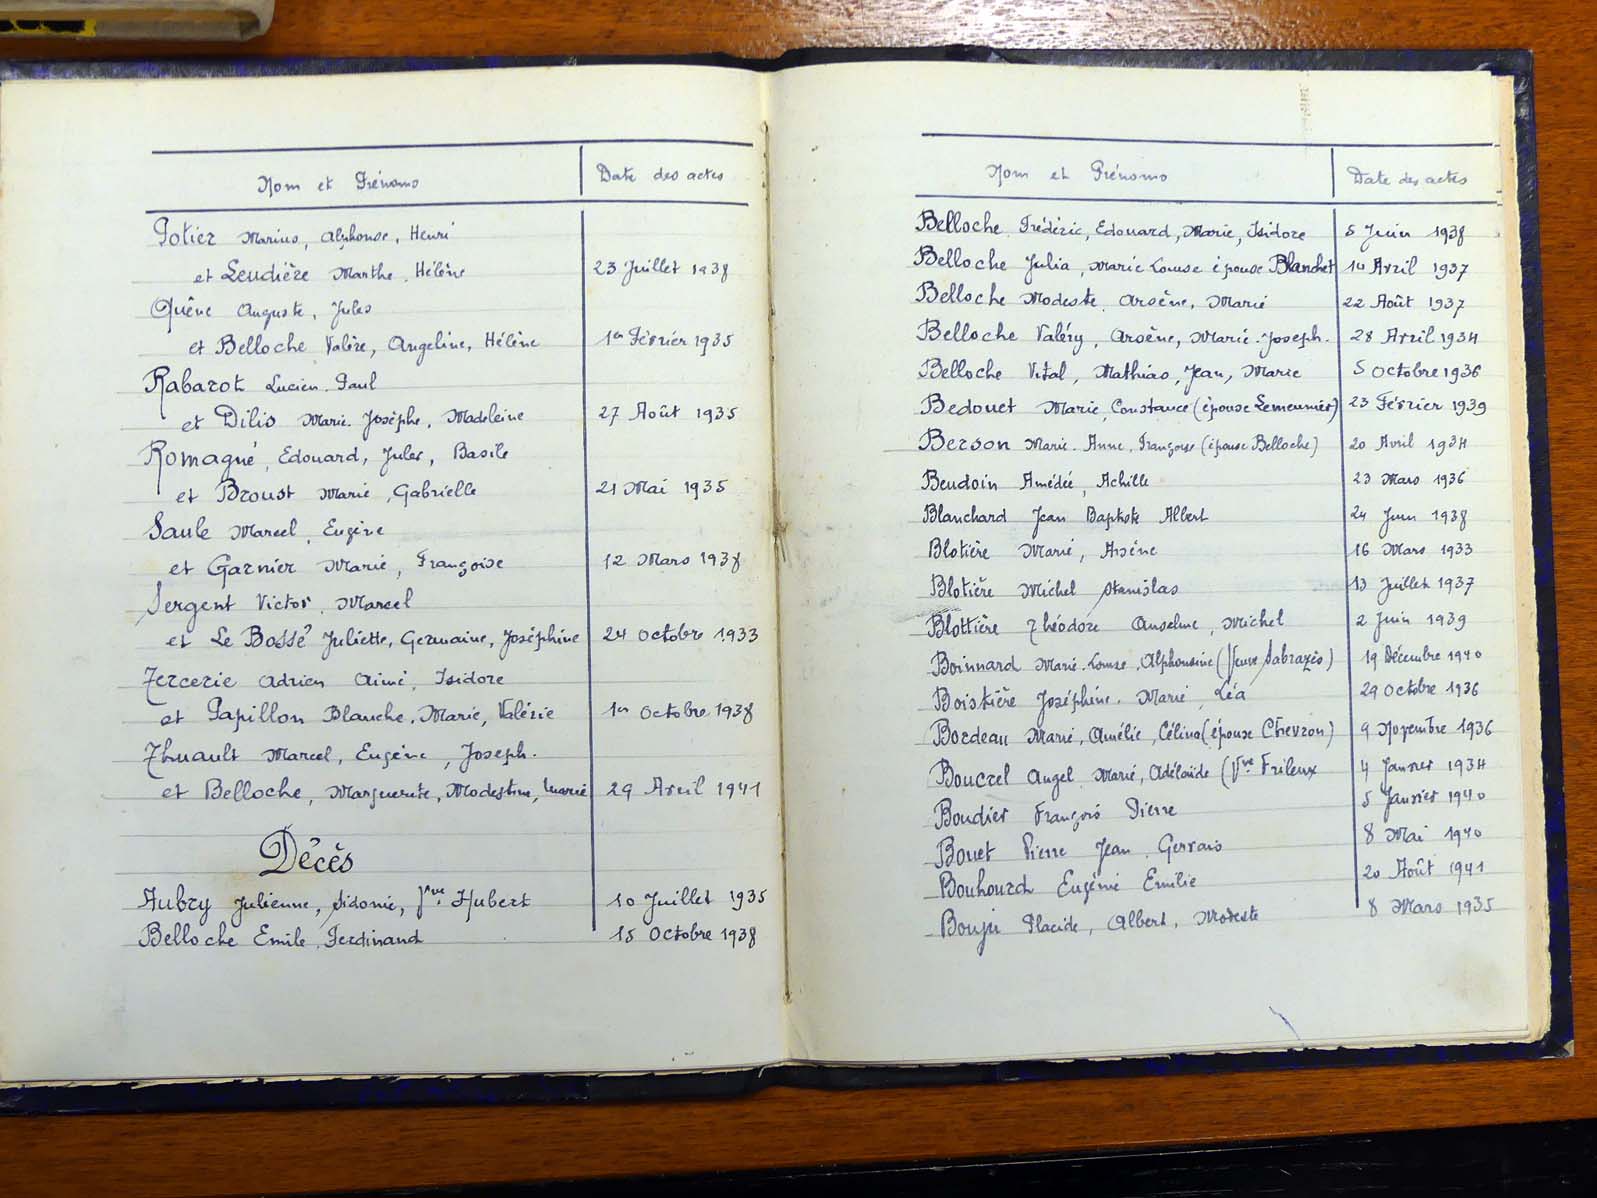 Nom et Prénoms
Date des actes
Potier Marius, Alphonse, Henri
et Leudière Marthe. Hélène 23 Juillet 1938
Quêne Auguste, Jules
et Belloche Valère, Angeline, Hélène 1er Février 1935
Rabarot Lucien. Paul
et Dilis Marie. Josèphe, Madeleine 27 Août 1935
Romagné, Edouard, Jules, Basile
et Broust Marie, Gabrielle 21 Mai 1935
Saule Marcel, Eugène
et Garnier Marie, Françoise 12 Mars 1938
Sergent Victor. Marcel
et Le Bossé Juliette, Germaine, Joséphine 24 Octobre 1933
Tercerie Adrien Aimé, Isidore
et Papillon Blanche. Marie, Valérie 1er Octobre 1938
Thuault Marcel, Eugène, Joseph.
et Belloche, Marguerite, Modestine, Marie 29 Avril 1941
Décès
Aubry Julienne, Sidonie, Vve. Hubert 10 Juillet 1935
Belloche Emile. Ferdinand 15 Octobre 1938
Nom et Prénoms
Date des actes
Belloche Frédéric, Edouard, Marie, Isidore 5 Juin 1938
Belloche Julia, Marie Louise épouse Blanchet 14 Avril 1937
Belloche Modeste. Arsène, Marie 22 Août 1937
Belloche Valéry, Arsène, Marie. Joseph. 28 Avril 1934
Belloche Vital, Mathias, Jean, Marie 5 Octobre 1936
Bedouet Marie, Constance (épouse Lemeunier) 23 Février 1939
Berson Marie. Anne, Françoise (épouse Belloche) 20 Avril 1934
Beudoin Amédée, Achille 23 Mars 1936
Blanchard Jean Baptiste Albert 24 Juin 1938
Blotière Marie, Arsène 16 Mars 1933
Blotière Michel Stanislas 13 Juillet 1937
Blottière Théodore Anselme, Michel 2 Juin 1939
Boinnard Marie. Louise. Alphonsine (Veuve Sabrazès) 19 Décembre 1940
Boistière Joséphine. Marie, Léa 29 Octobre 1936
Bordeau Marie, Amélie, Célina (épouse Chevron) 9 Novembre 1936
Boucrel Angel, Marie, Adélaïde (Vve. Frileux 4 Janvier 1934
Boudier François Pierre 5 Janvier 1940
Bouet Pierre Jean. Gervais 8 Mai 1940
Bouhourd Eugénie Emilie 20 Août 1941
Boujú Placide, Albert, Modeste 8 Mars 1935